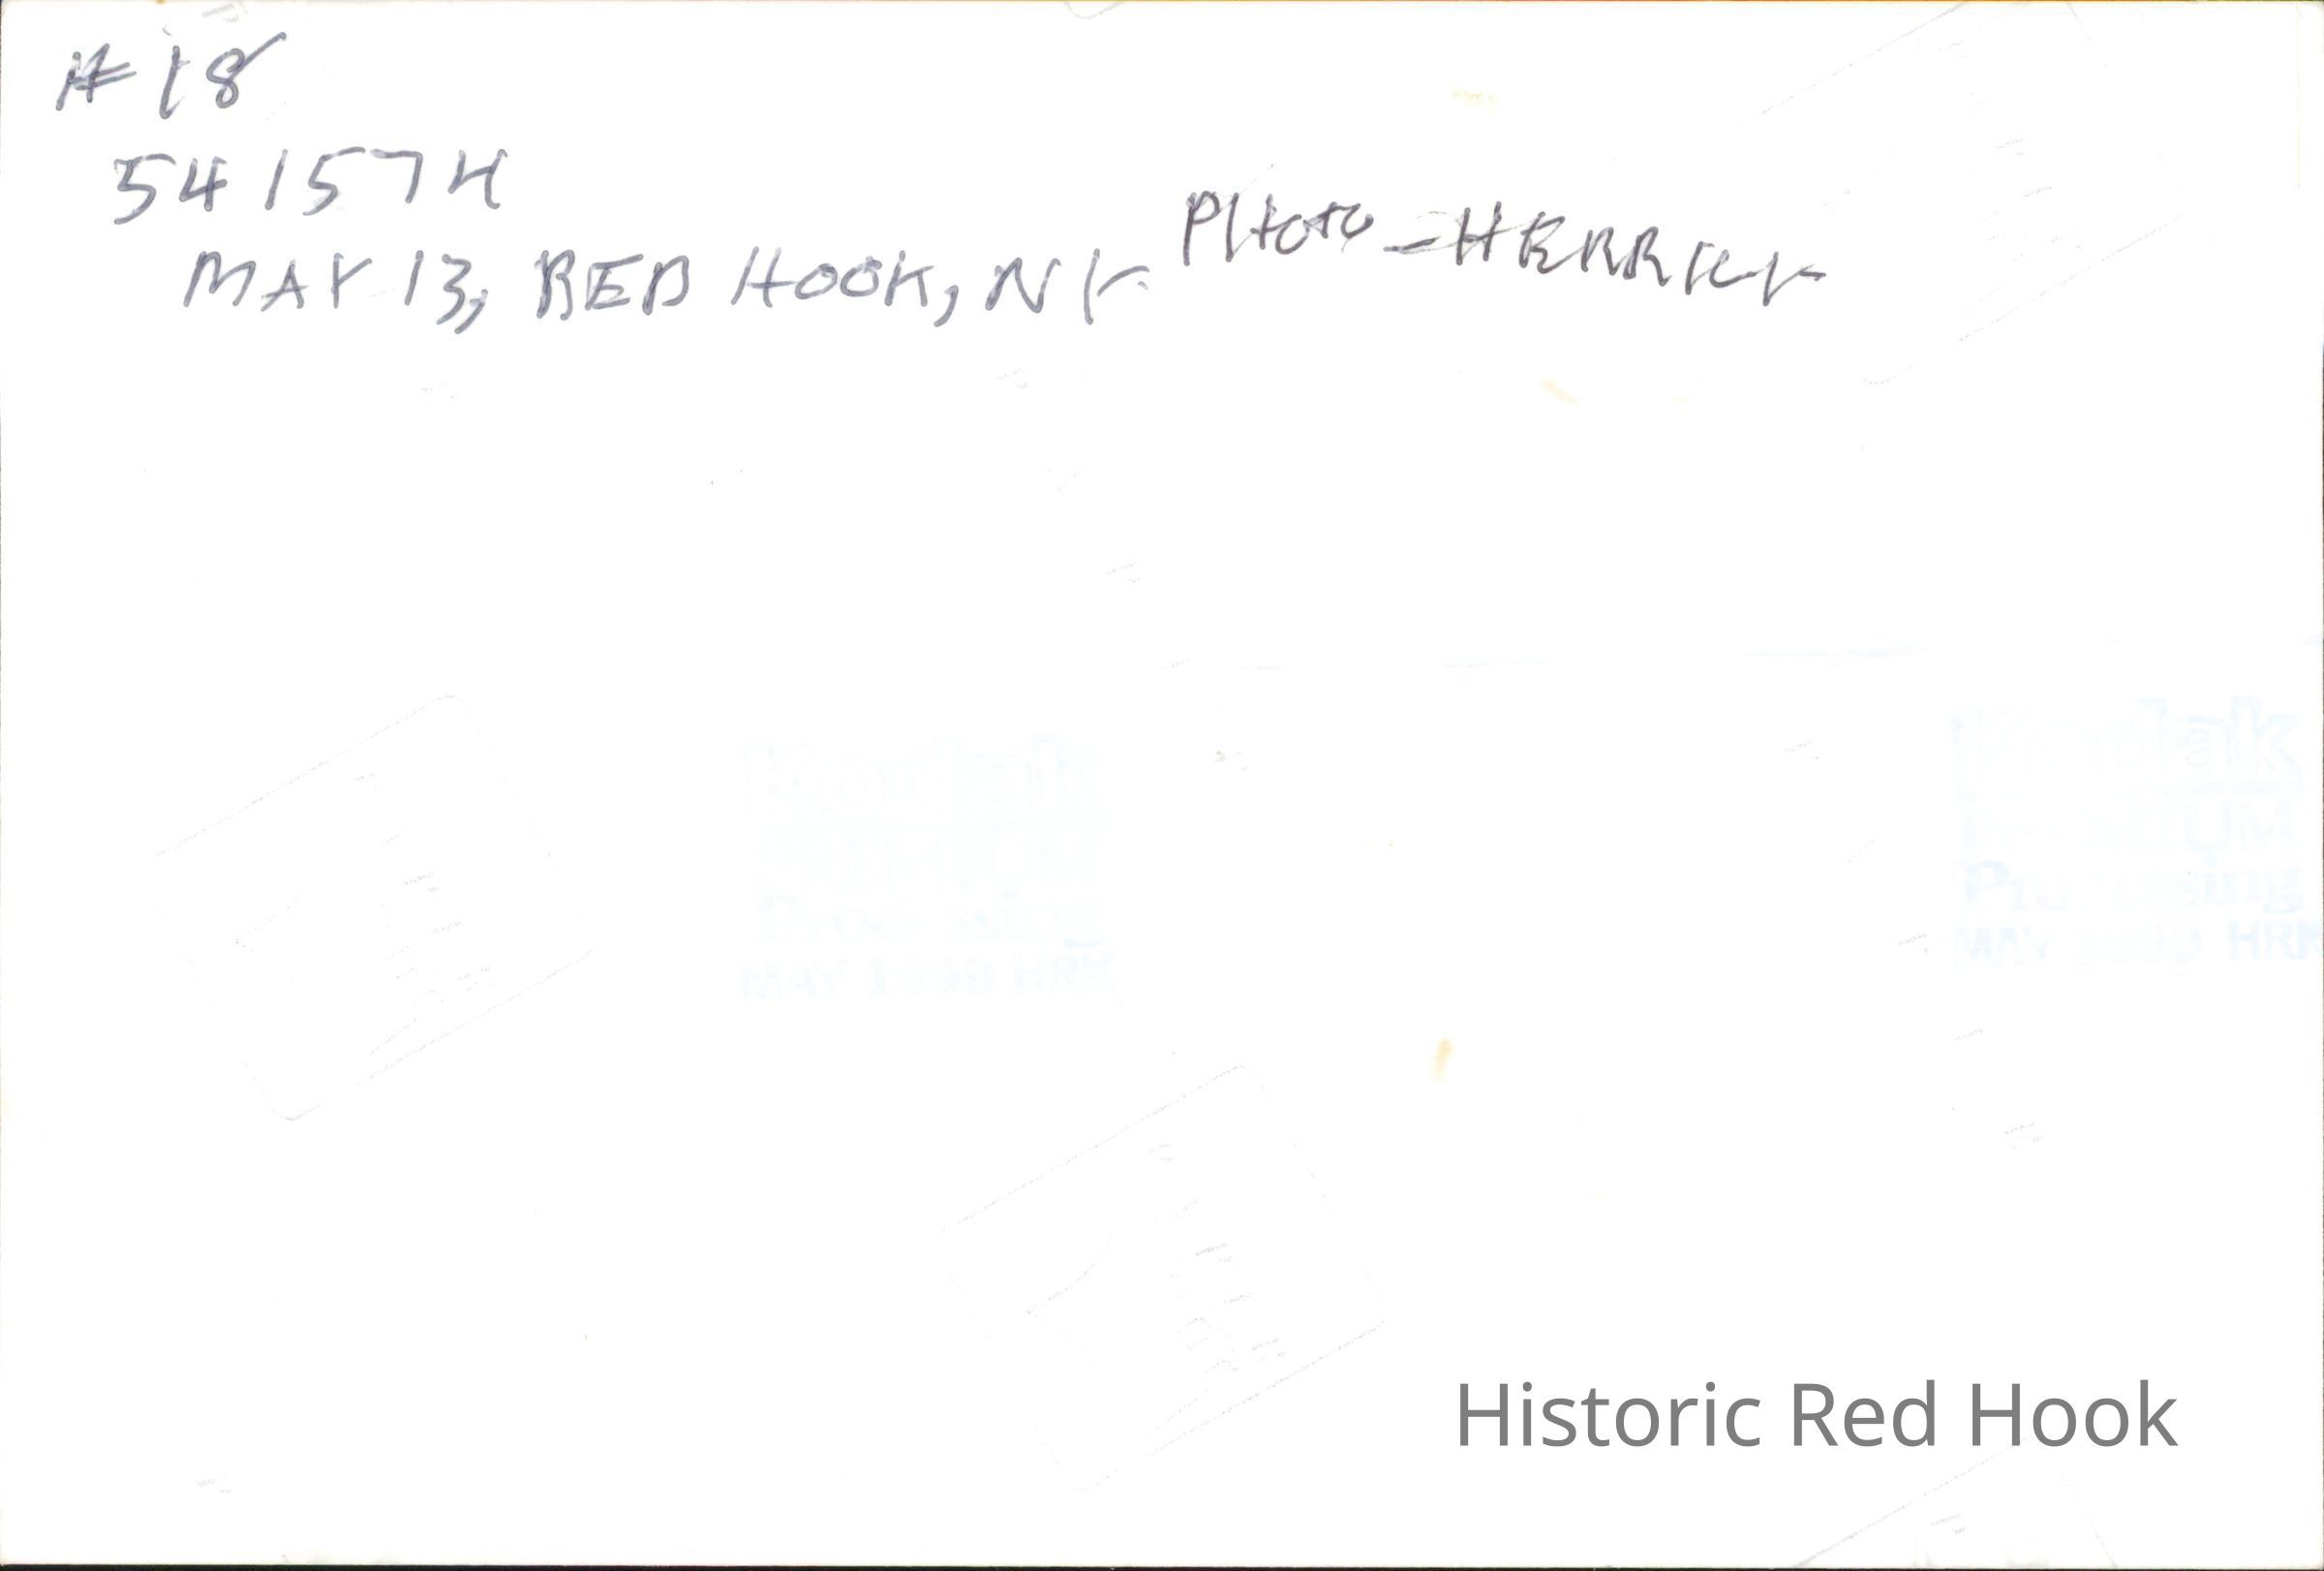 #18
541574
MAY 13, RED HOOK, NY
PHOTO - HERRICK
Kodak
PREMIUM
Processing
MAY 1999 HRK
Kodak
PREMIUM
Processing
MAY 1999 HRK
Historic Red Hook